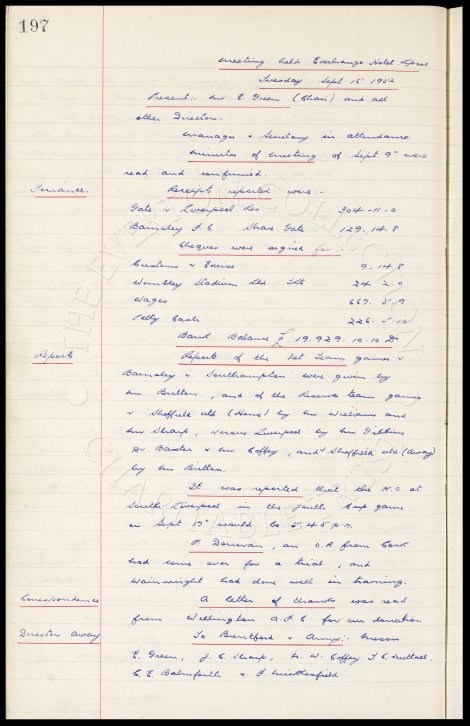 197
meeting held Exchange Hotel Lpool
Tuesday Sept 15 1952
Present:- Mr E. Green (Chair) and all
other Directors.
Manager & Secretary in attendance
Minutes of meeting of Sept 9th were
read and confirmed.
Finance. Receipts reported were:-
Gate v Liverpool Res 304-11.0
Barnsley F.C Share Gate 129.14.8
Cheques were signed for:-
Customs & Excise 9.14.8
Wembley Stadium Ltd Tkts 24.2.0
Wages 667.5.9
Petty Cash 226.5.10
Bank Balance £ 19.929.10.10 Dr
Reports Reports of the 1st Team games v
Barnsley & Southampton were given by
Mr Britten, and of the Reserve team games
v Sheffield Utd (Home) by Mr Williams and
Mr Sharp, versus Liverpool by Mr Gibbins
Dr Baxter & Mr Coffey, and v Sheffield Utd (Away)
by Mr Britten.
It was reported that the K.O at
South Liverpool in the Youth Cup game
on Sept 17th would be 5.45 p.m.
P. Donovan, an O.R from Cork
had come over for a trial, and
Wainwright had done well in training.
Correspondence A letter of thanks was read
from Wellington A.F.C for our donation
Director Away To Brentford & Army:- Messrs
E. Green, J. C. Sharp, N. W. Coffey, T. C. Nuttall,
C. E. Balmforth & F. Micklesfield.
THE EVERTON COLLECTION
CHARITABLE TRUST